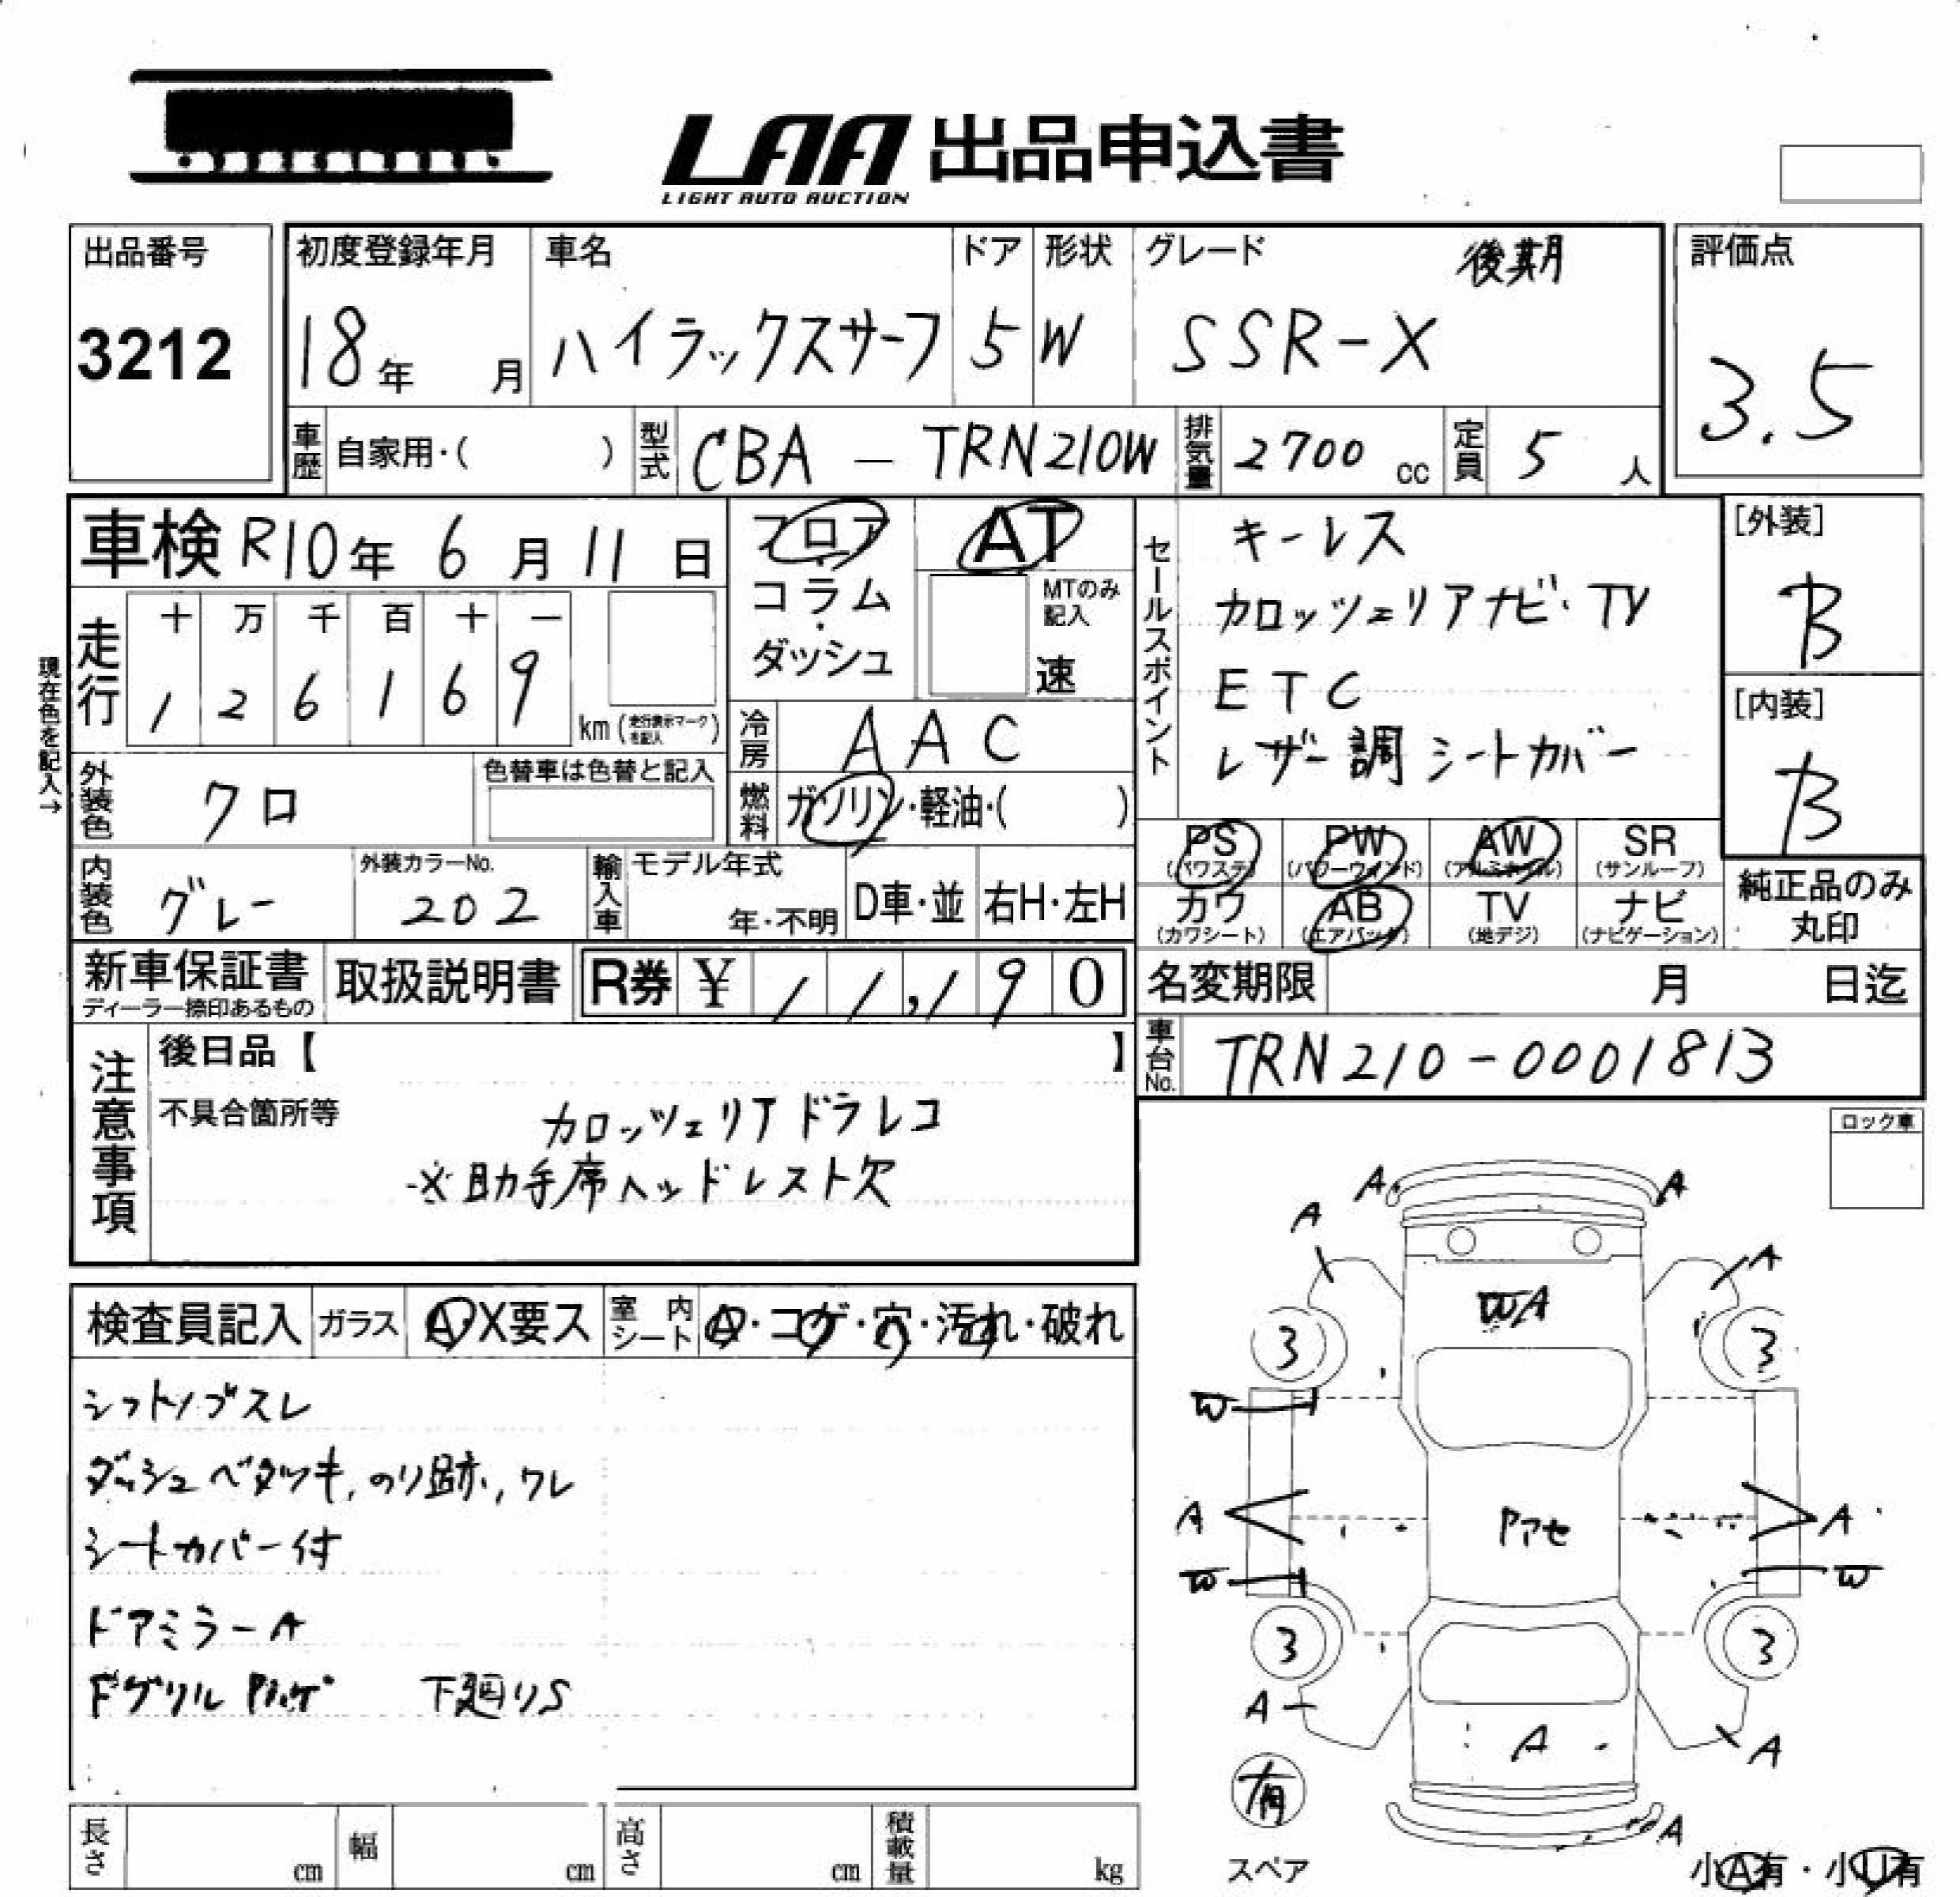 LAA 出品申込書
LIGHT AUTO AUCTION
出品番号
3212
初度登録年月
18年 月
車名
ハイラックスサーフ
ドア
5
形状
W
グレード 後期
SSR-X
評価点
3.5
車歴 自家用・( )
型式 CBA - TRN210W
排気量 2700 cc
定員 5 人
車検 R10年 6月 11日
フロア
・
コラム
・
ダッシュ
AT
MTのみ
記入
速
セールスポイント
キーレス
カロッツェリアナビ・TV
ETC
レザー調シートカバー
[外装]
B
[内装]
B
現在色を記入→
走行
十 万 千 百 十 一
1 2 6 1 6 9
km (走行表示マークを記入)
冷房 AAC
燃料 ガソリン・軽油・( )
外装色 クロ
色替車は色替と記入
内装色 グレー
外装カラーNo.
202
輸入車
モデル年式
年・不明
D車・並
右H・左H
PS (パワステ)
PW (パワーウインド)
AW (アルミホイル)
SR (サンルーフ)
カワ (カワシート)
AB (エアバック)
TV (地デジ)
ナビ (ナビゲーション)
純正品のみ
丸印
新車保証書
ディーラー捺印あるもの
取扱説明書
R券 ¥ 11,190
名変期限 月 日迄
車台No. TRN210-0001813
注意事項
後日品【 】
不具合箇所等
カロッツェリアドラレコ
※助手席ヘッドレスト欠
ロック車
検査員記入
ガラス A・X要ス
室内シート A・コゲ・穴・汚れ・破れ
シフトノブスレ
ダッシュベタツキ,のり跡,ワレ
シートカバー付
ドアミラーA
FグリルPハゲ 下廻りS
A A
A A
WA
3 3
W
A Pアセ A
W W
3 3
A A A
有
スペア
A
小A有・小U有
長さ cm
幅 cm
高さ cm
積載量 kg